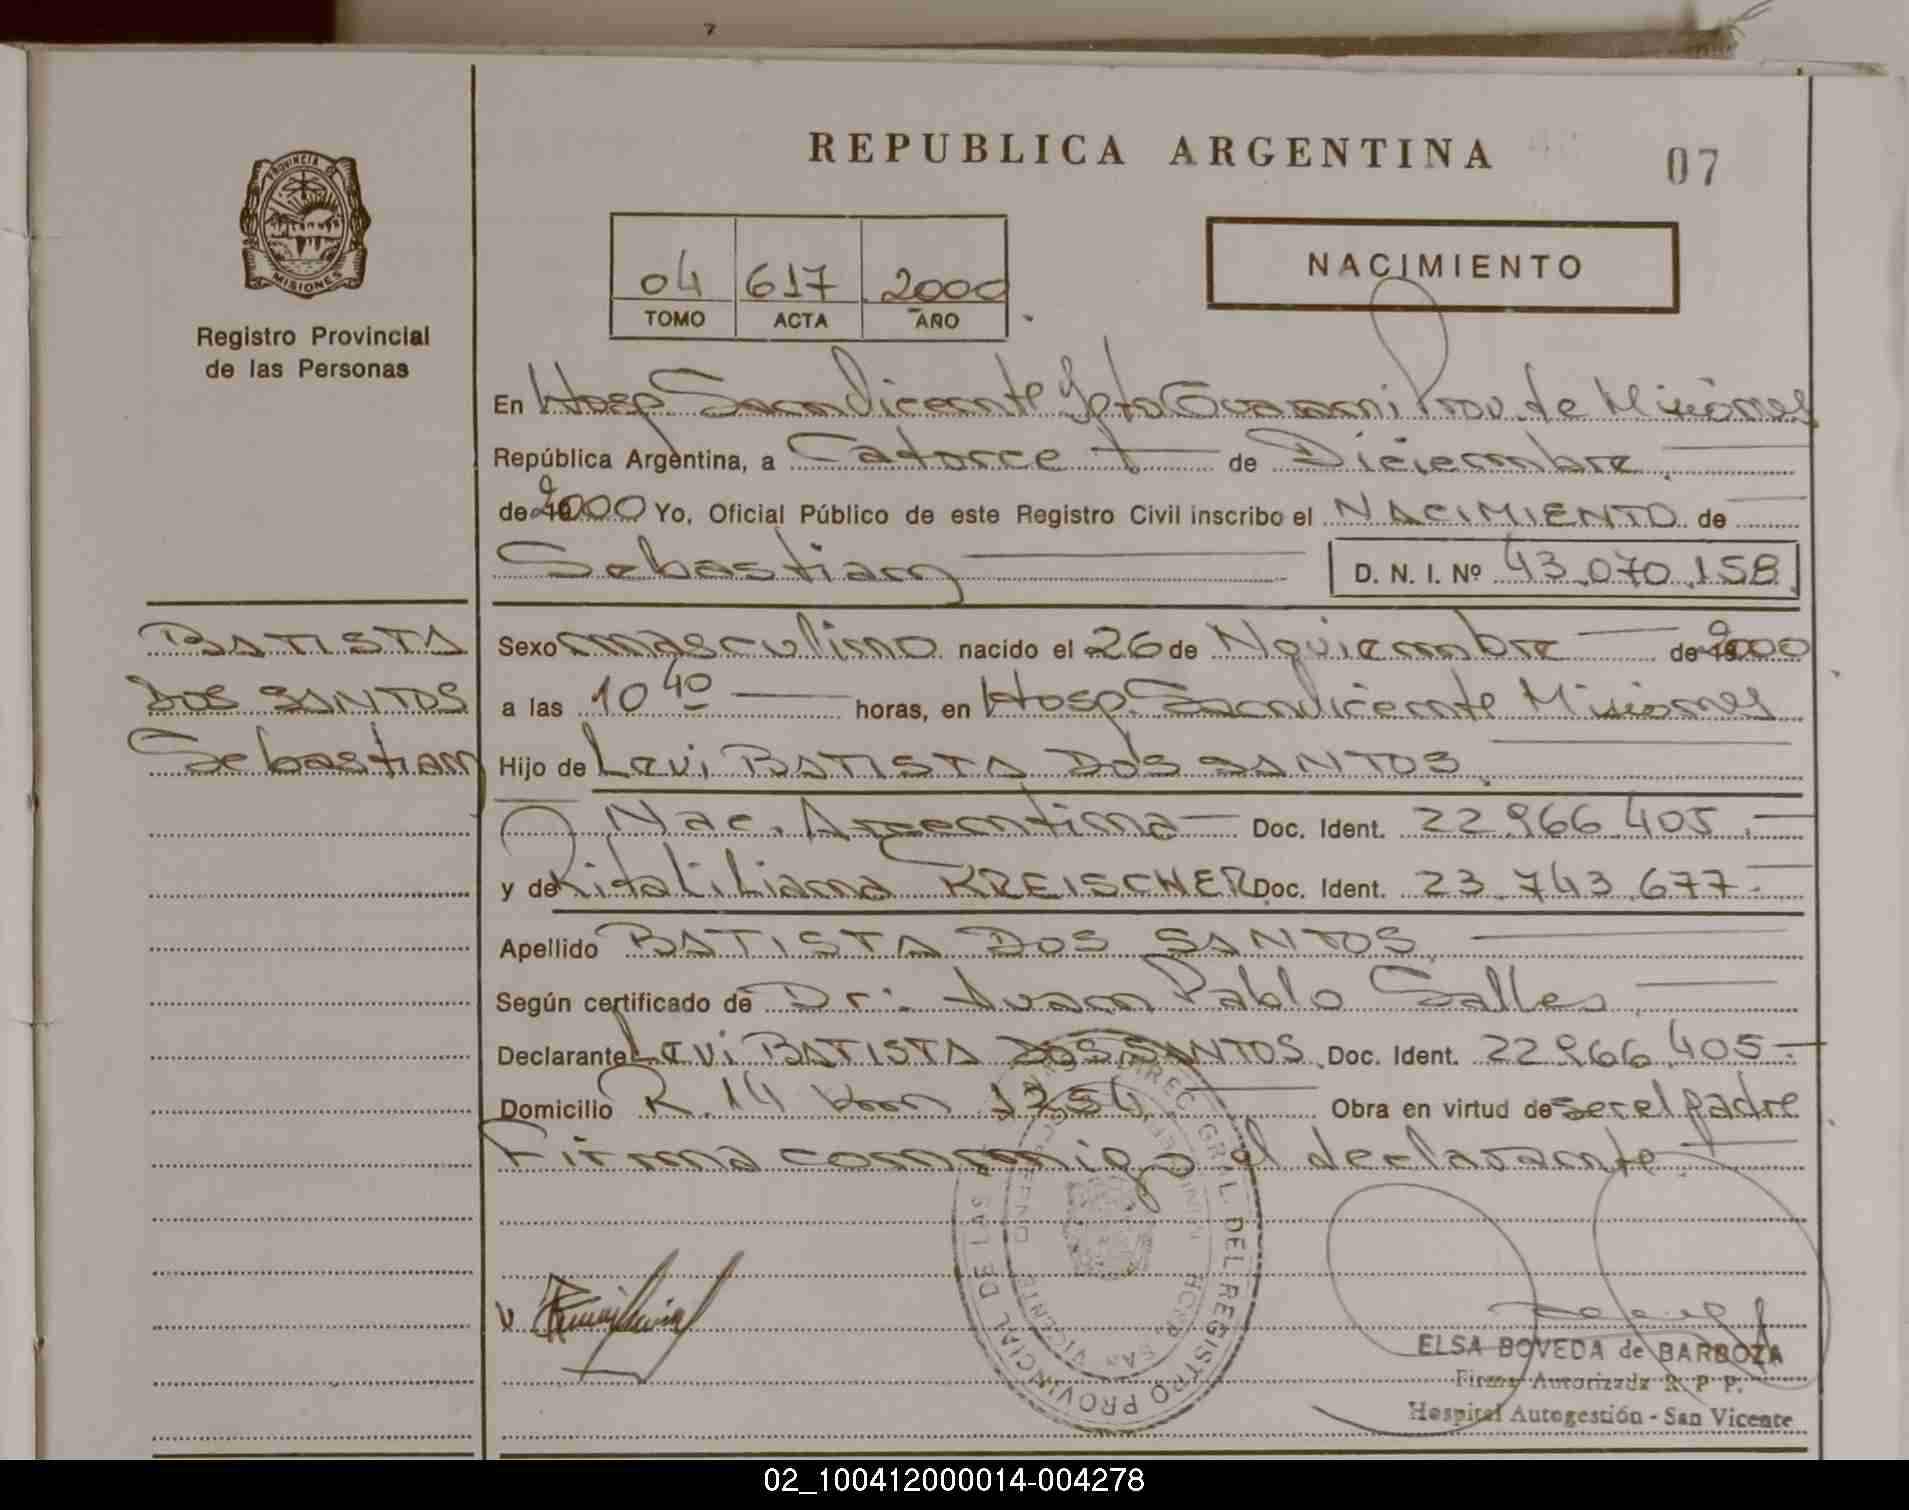 REPUBLICA ARGENTINA
07
PROVINCIA DE
MISIONES
Registro Provincial
de las Personas
04 617 2000
TOMO ACTA AÑO
NACIMIENTO
En Hosp San Vicente Dpto Guarani Prov. de Misiones
República Argentina, a Catorce de Diciembre
de 2000 Yo, Oficial Público de este Registro Civil inscribo el NACIMIENTO de
Sebastian D. N. I. Nº 43.070.158
BATISTA
DOS SANTOS
Sebastian
Sexo masculino nacido el 26 de Noviembre de 2000
a las 10 40 horas, en Hosp. San Vicente Misiones
Hijo de Levi BATISTA DOS SANTOS
Nac. Argentina Doc. Ident. 22.966.405
y de Rita Liliana KREISCHER Doc. Ident. 23.743.677
Apellido BATISTA DOS SANTOS
Según certificado de Dr. Juan Pablo Salles
Declarante Levi BATISTA DOS SANTOS Doc. Ident. 22.966.405
Domicilio R. 14 Km 1254 Obra en virtud de ser el padre
Firma conmigo el declarante.
DIREC. GRAL. DEL REGISTRO PROVINCIAL DE LAS
HOSP. SAN VICENTE
ELSA BOVEDA de BARBOZA
Firma Autorizada R. P. P.
Hospital Autogestión - San Vicente
02_100412000014-004278